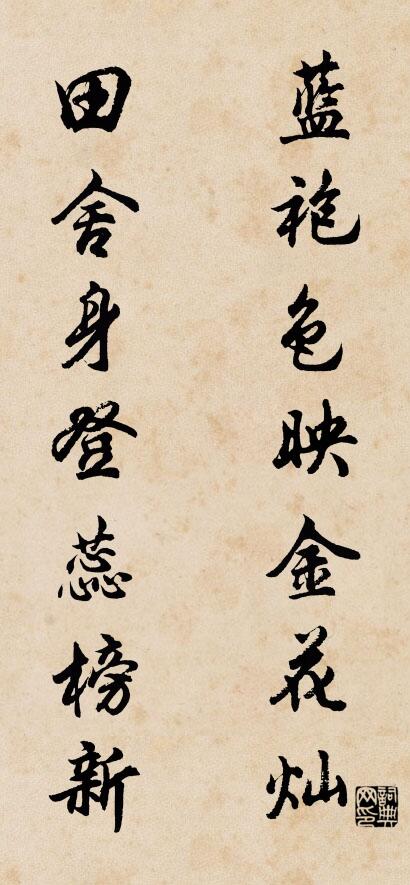 蓝袍色映金花灿
田舍身登蕊榜新
词典网印